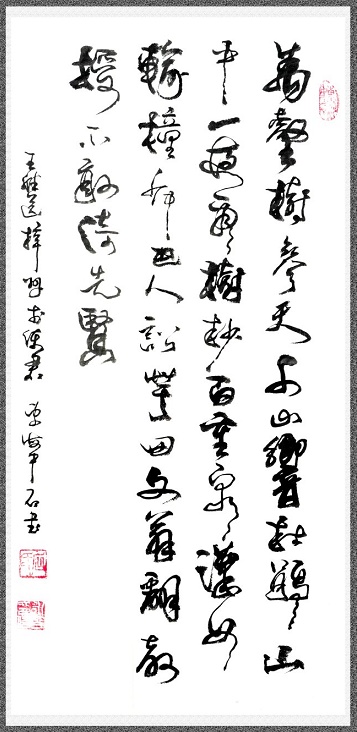 萬壑樹參天千山響杜鵑山
中一夜雨樹杪百重泉漢女
輸橦布巴人訟芋田文翁翻教
授不敢倚先賢
王維送梓州李使君 石書